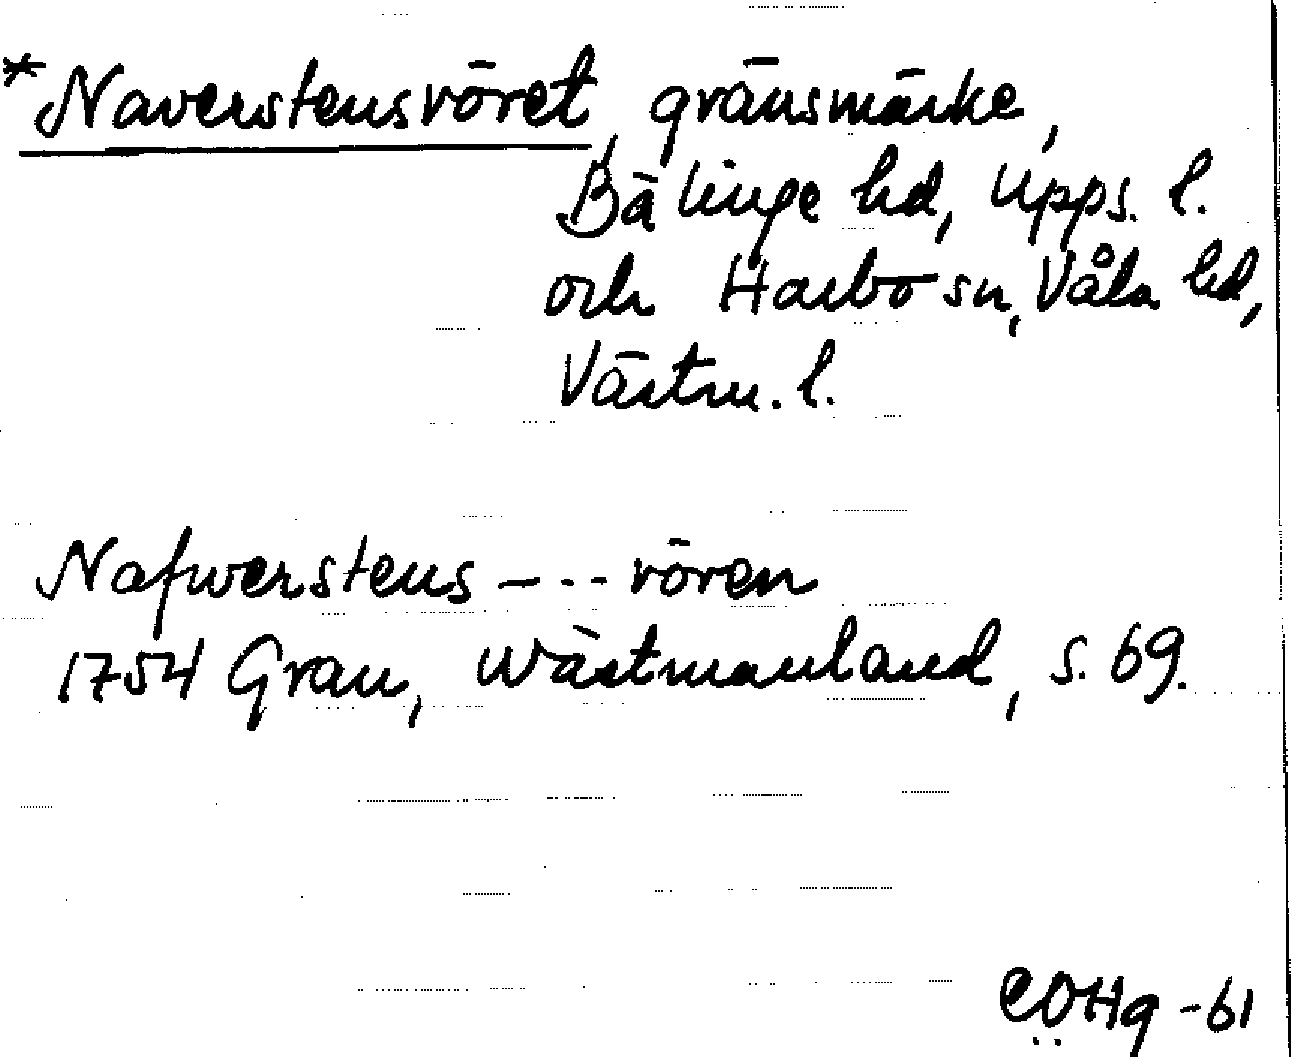 *Naverstensröret, gränsmärke,
Bälinge hd, Upps. l.
och Harbo sn, Våla hd,
Västm. l.
Nafwerstens – - - rören
1754 Grau, Wästmanland, s. 69.
CÖHg -61